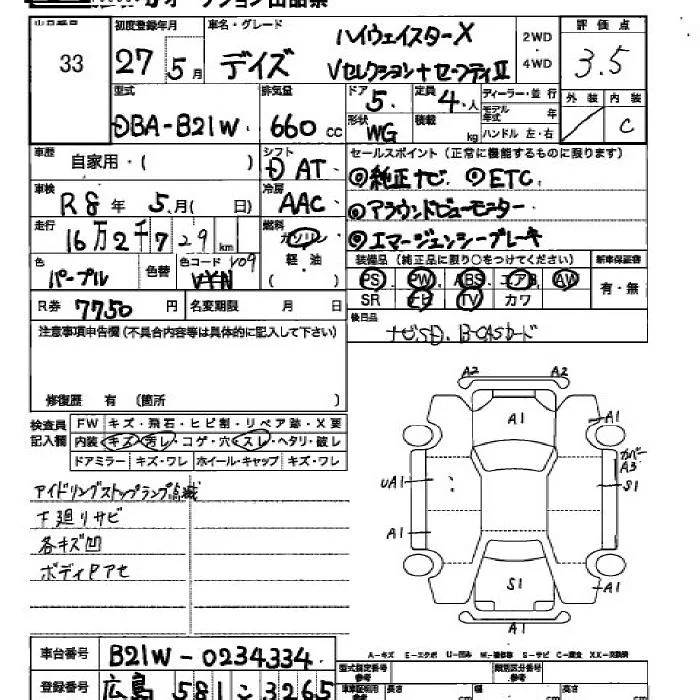 オークション出品票
出品番号 33
初度登録年月 27年 5月
車名・グレード デイズ ハイウェイスターX Vセレクション+セーフティII
2WD・4WD
評価点 3.5
外装 内装 C
型式 DBA-B21W
排気量 660 cc
ドア 5
定員 4人
形状 WG
積載 kg
ディーラー・並行
モデル年式 年
ハンドル 左・右
車歴 自家用・( )
シフト D AT
セールスポイント(正常に機能するものに限ります)
◎純正ナビ ◎ETC
◎アラウンドビューモニター
◎エマージェンシーブレーキ
車検 R8年 5月( 日)
冷房 AAC
走行 16万2千729 km
燃料 ガソリン 軽・油 ( )
色 パープル 色替 色コード V09
装備品(純正品に限り○をつけてください) 新車保証書
PS PW ABS エアB AW 有・無
SR ナビ TV カワ
R券 7750円
名変期限 月 日
後日品
ナビSD、B-CASカード
注意事項申告欄(不具合内容等は具体的に記入して下さい)
修復歴 有 (箇所 )
検査員記入欄
FW キズ・飛石・ヒビ割・リペア跡・X要
内装 キズ・汚レ・コゲ・穴・スレ・ヘタリ・破レ
ドアミラー キズ・ワレ ホイール・キャップ キズ・ワレ
アイドリングストップランプ点滅
下廻りサビ
各キズ凹
ボディヤアセ
A2 A2
A1 A1
カバーA3
UA1 S1
A1
S1 A1
A1
A-キズ E-エクボ U-凹み W-補修跡 S-サビ C-腐食 XX-交換済
車台番号 B21W-0234334
登録番号 広島 581 こ 3265
型式指定番号 類別区分番号
参考 参考
長さ cm 幅 cm 高さ cm